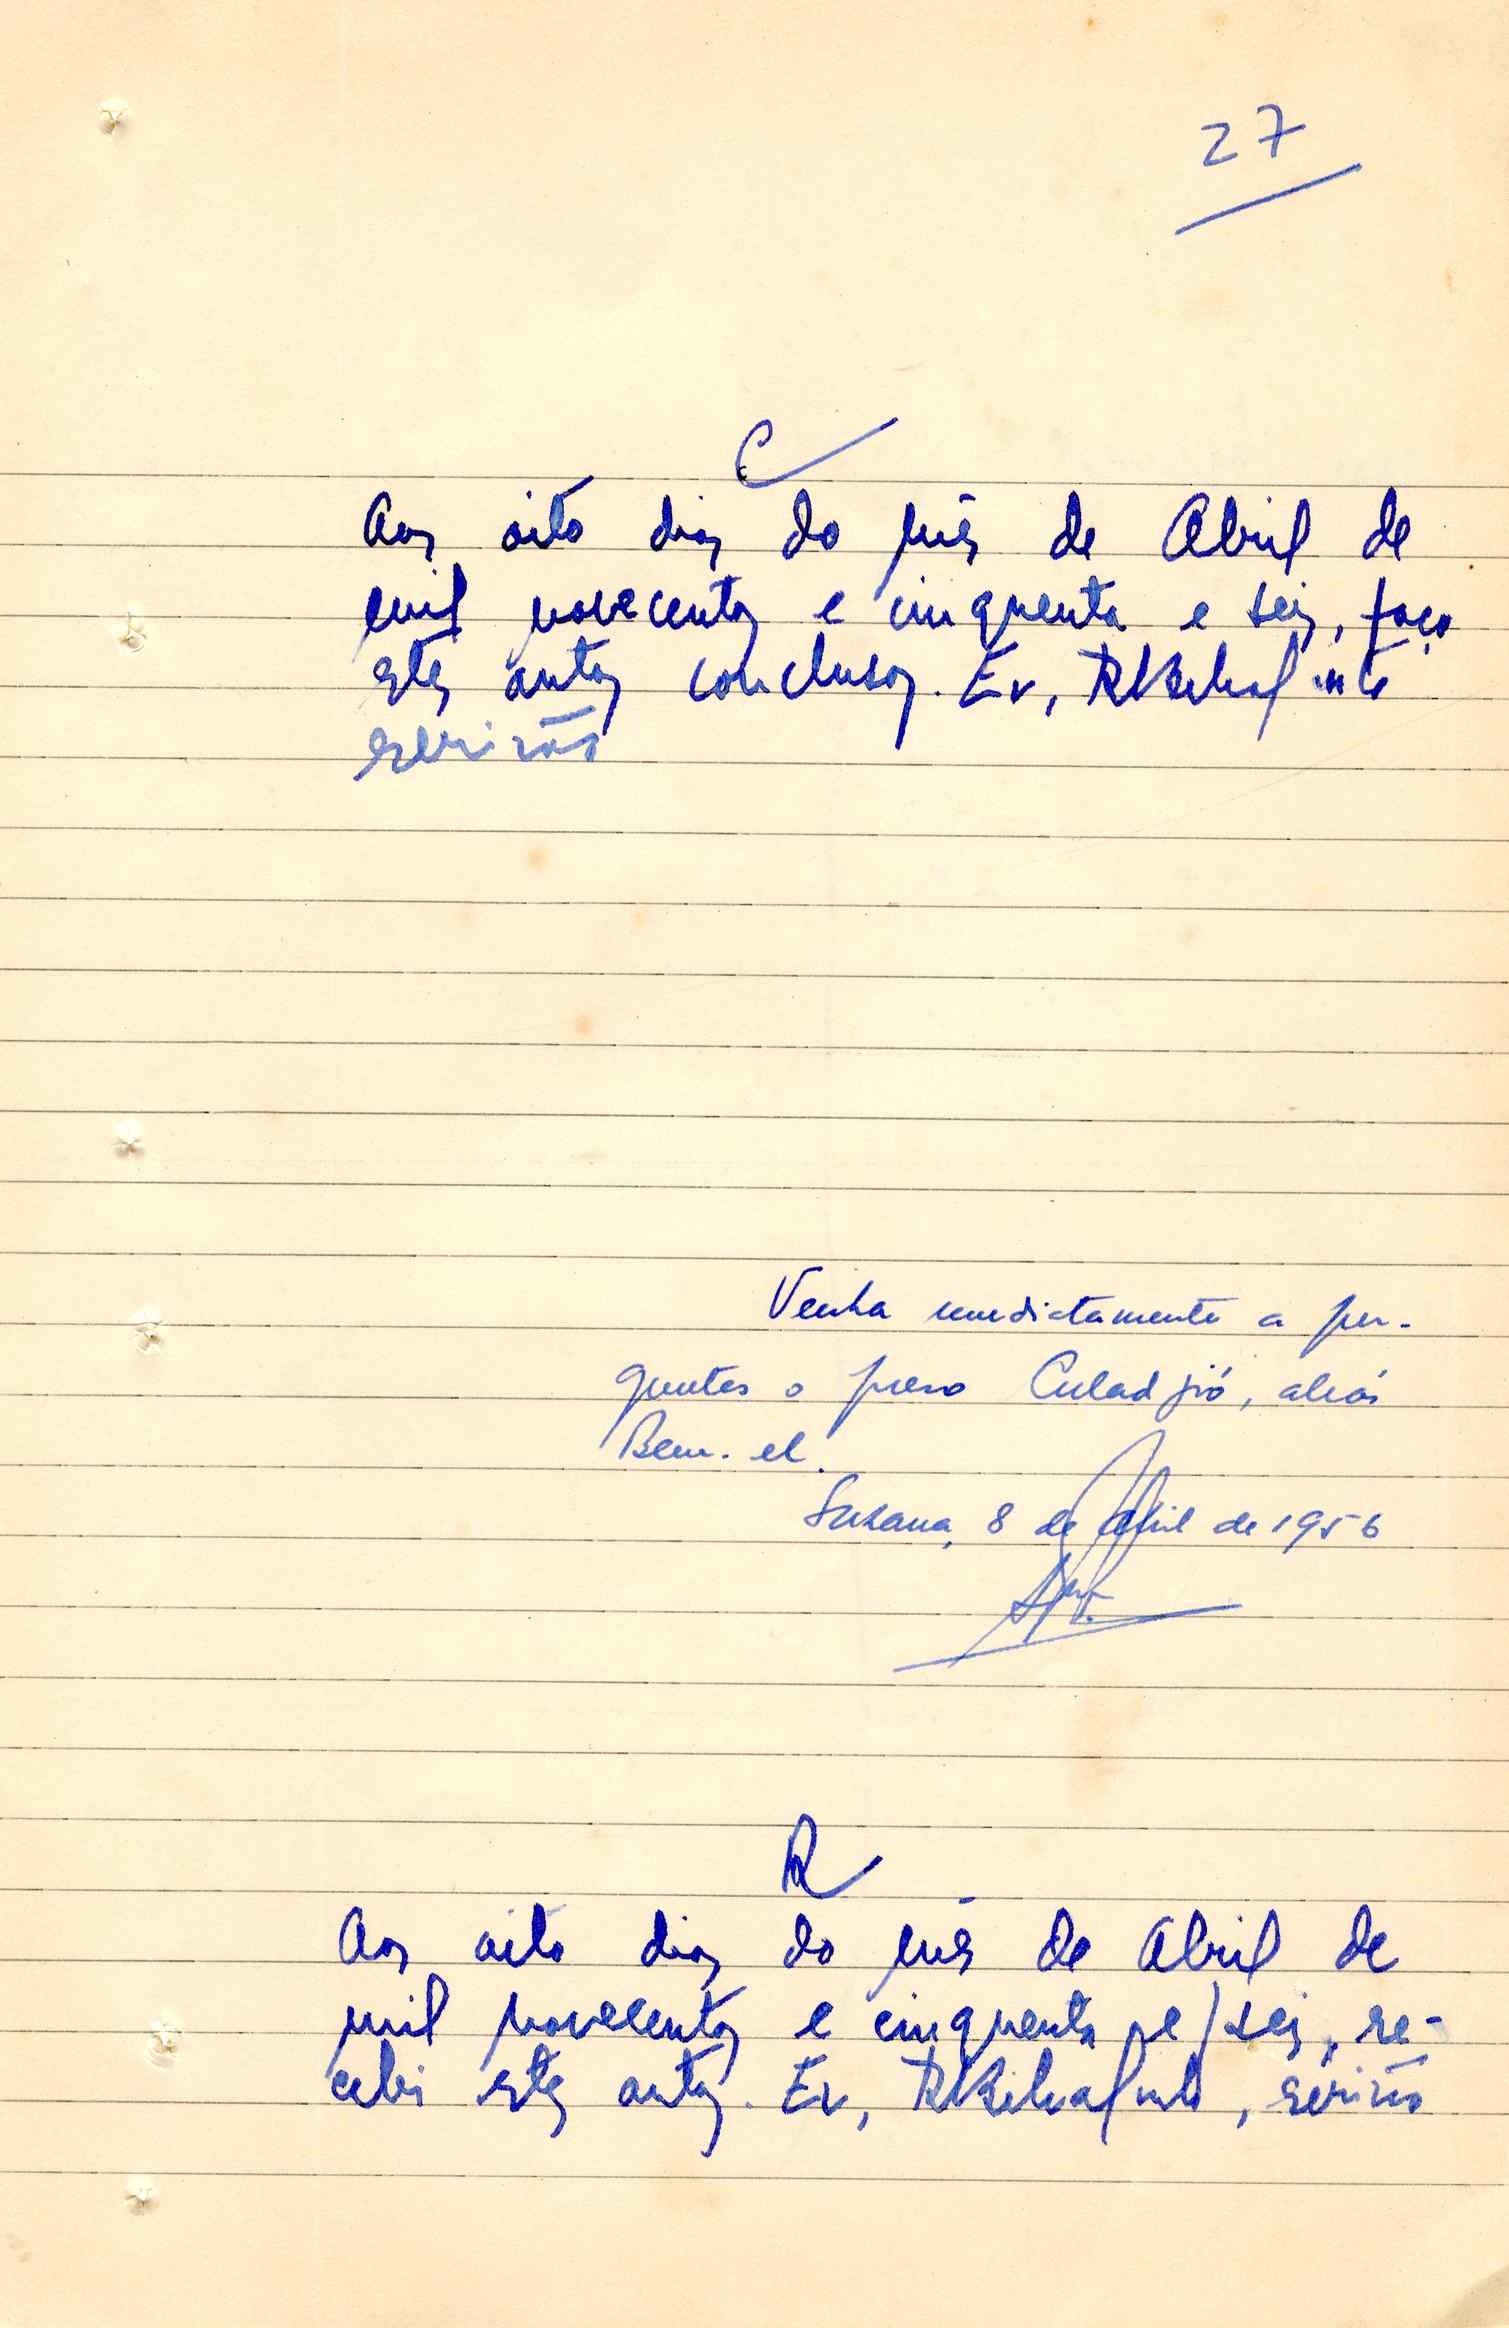 27
C
Aos oito dias do mês de Abril de
mil novecentos e cinquenta e seis, faço
estes autos conclusos. Eu,
escrivão
Venha imediatamente a per-
guntas o preso Culadjió, aliás
Bem-el.
Susana, 8 de Abril de 1956
R
Aos oito dias do mês de Abril de
mil novecentos e cinquenta e seis, re-
cebi estes autos. Eu, , escrivão